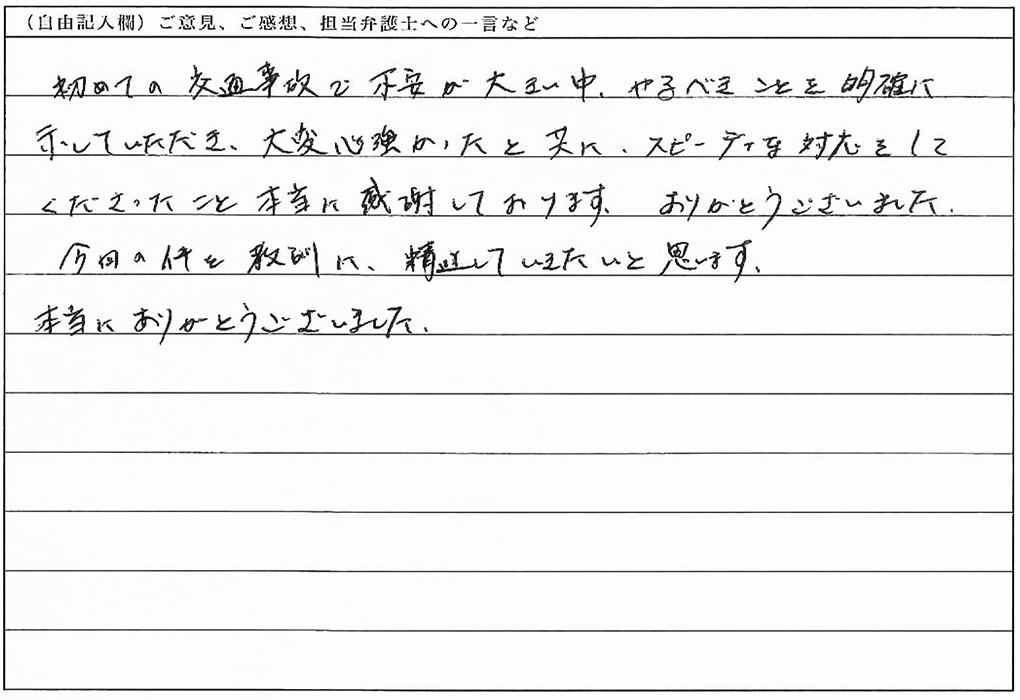 （自由記入欄）ご意見、ご感想、担当弁護士への一言など
初めての交通事故で不安が大きい中、やるべきことを的確に
示していただき、大変心強かったと共に、スピーディな対応をして
くださったこと本当に感謝しております。ありがとうございました。
今回の件を教訓に、精進していきたいと思います。
本当にありがとうございました。